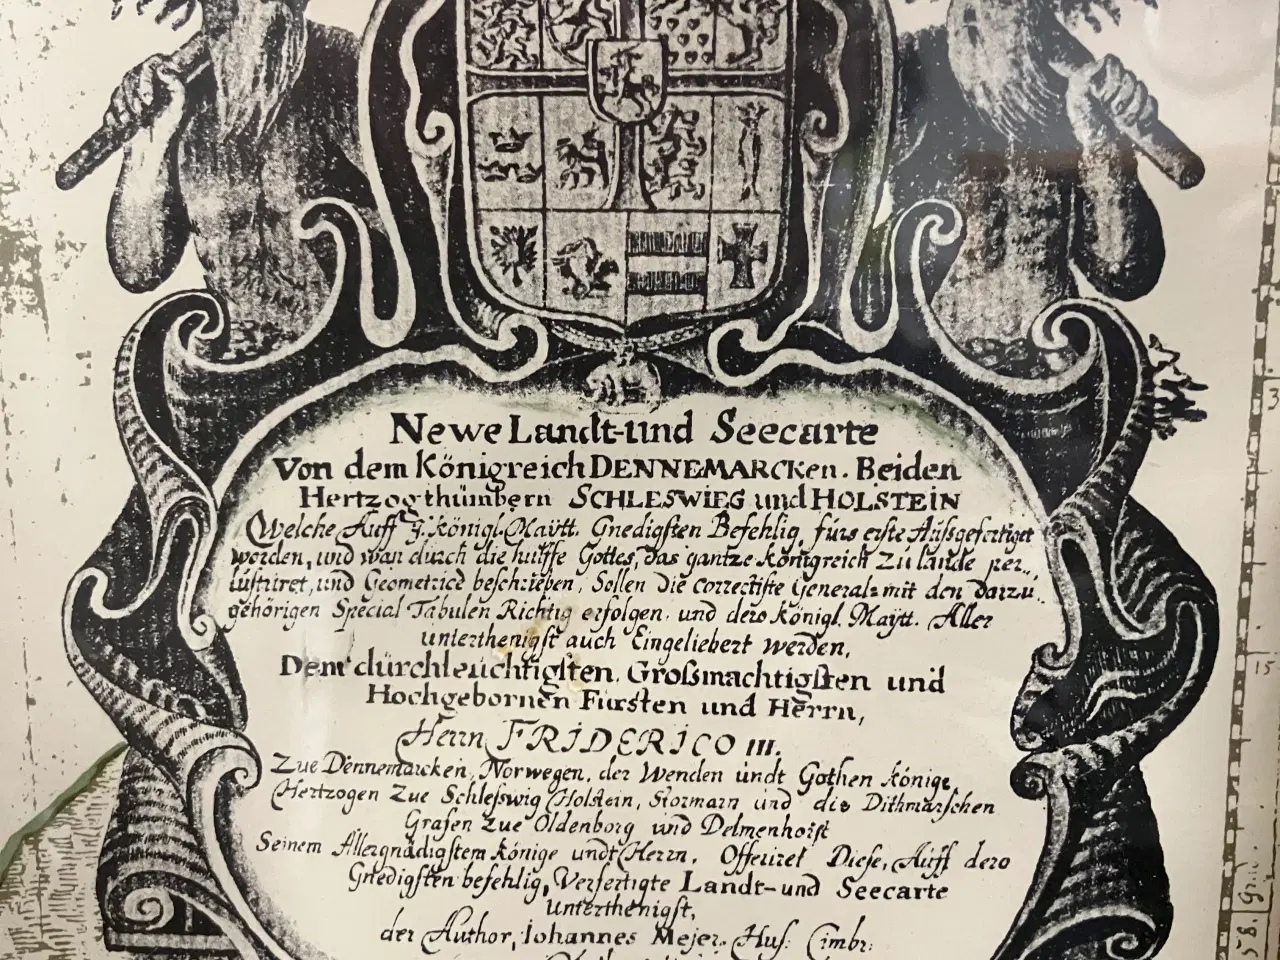 Newe Landt-und Seecarte
Von dem Königreich DENNEMARCKen. Beiden
Hertzogthümbern SCHLESWIEG und HOLSTEIN
Welche Auff Königl. Maÿtt. Gnedigsten Befehlig, fürs erste Außgefertiget
worden, und wan durch die hülffe Gottes, das gantze Königreich Zu lande per„
lustriret, und Geometricè beschrieben, Sollen die correctiste General= mit den darzu„
gehörigen Special Tabulen Richtig erfolgen, und dero Königl. Maÿtt. Aller
unterthenigst auch Eingeliebert werden.
Dem dürchleuchtigsten. Großmachtigsten und
Hochgebornen Fürsten und Herrn,
Herrn FRIDERICO III.
Zue Dennemarcken, Norwegen, der Wenden undt Gothen Könige
Hertzogen Zue Schleßwig Holstein, Stormarn und die Dithmarschen
Grafen Zue Oldenborg und Delmenhorst
Seinem Allergnädigstem Könige undt Herrn. Offeriret Diese, Auff dero
Gnedigsten befehlig, Verfertigte Landt-und Seecarte
unterthenigst,
der Author, Iohannes Mejer. Hus: Cimbr:
58. Grad.
15
3